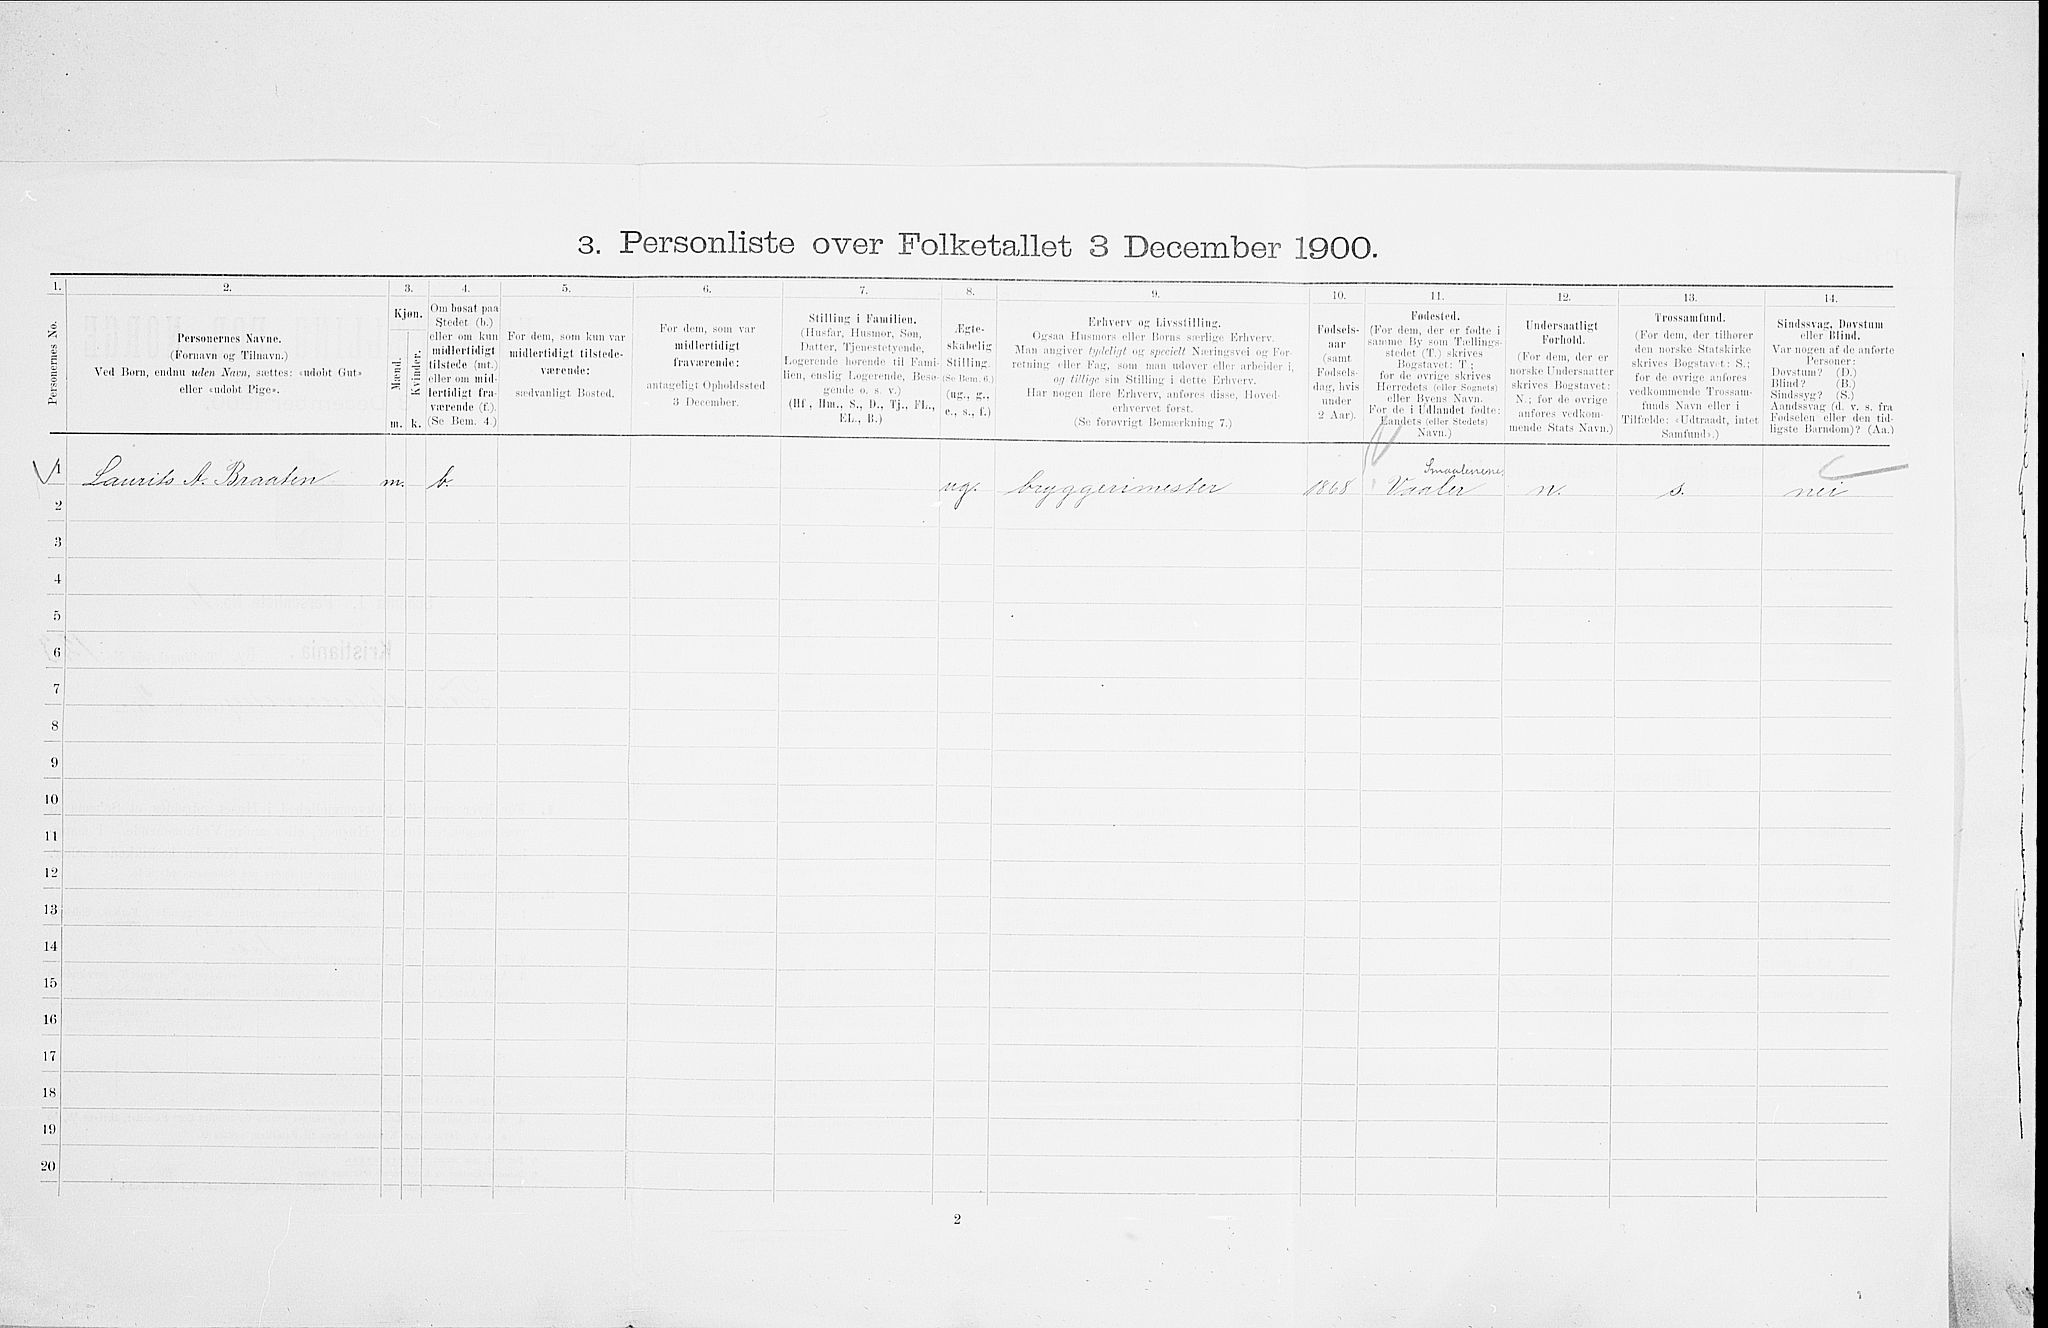 3. Personliste over Folketallet 3 December 1900.
1. 2. 3. 4. 5. 6. 7. 8. 9. 10. 11. 12. 13. 14.
Personernes No.
Personernes Navne.
(Fornavn og Tilnavn.)
Ved Børn, endnu uden Navn, sættes: «udøbt Gut»
eller «udøbt Pige».
Kjøn.
Mænd.
Kvinder.
m. k.
Om bosat paa
Stedet (b.)
eller om kun
midlertidigt
tilstede (mt.)
eller om mid-
lertidigt fra-
værende (f.).
(Se Bem. 4.)
For dem, som kun var
midlertidigt tilstede-
værende:
sædvanligt Bosted.
For dem, som var
midlertidigt
fraværende:
antageligt Opholdssted
3 December.
Stilling i Familien.
(Husfar, Husmor, Søn,
Datter, Tjenestetyende,
Logerende hørende til Fami-
lien, enslig Logerende, Besø-
gende o. s. v.)
(Hf., Hm., S., D., Tj., FL.,
EL., B.)
Ægte-
skabelig
Stilling.
(Se Bem. 6.)
(ug., g.,
e., s., f.)
Erhverv og Livsstilling.
Ogsaa Husmors eller Børns særlige Erhverv.
Man angiver tydeligt og specielt Næringsvei og For-
retning eller Fag, som man udøver eller arbeider i,
og tillige sin Stilling i dette Erhverv.
Har nogen flere Erhverv, anføres disse, Hoved-
erhvervet først.
(Se forøvrigt Bemærkning 7.)
Fødsels-
aar
(samt
Fødsels-
dag, hvis
under
2 Aar).
Fødested.
(For dem, der er fødte i
samme By som Tællings-
stedet (T.) skrives
Bogstavet: T;
for de øvrige skrives
Herredets (eller Sognets)
eller Byens Navn.
For de i Udlandet fødte:
Landets (eller Stedets)
Navn.)
Undersaatligt
Forhold.
(For dem, der er
norske Undersaatter
skrives Bogstavet:
N.; for de øvrige
anføres vedkom-
mende Stats Navn.)
Trossamfund.
(For dem, der tilhører
den norske Statskirke
skrives Bogstavet: S.;
for de øvrige anføres
vedkommende Trossam-
funds Navn eller i
Tilfælde: «Udtraadt, intet
Samfund».)
Sindssvag, Døvstum
eller Blind.
Var nogen af de anførte
Personer:
Døvstum? (D.)
Blind? (B.)
Sindssyg? (S.)
Aandssvag (d. v. s. fra
Fødselen eller den tid-
ligste Barndom)? (Aa.)
Smaalenene
1 Laurits A. Braaten m. b. ug. bryggerimester 1868 Vaaler n. s. nei
2
3
4
5
6
7
8
9
10
11
12
13
14
15
16
17
18
19
20
2